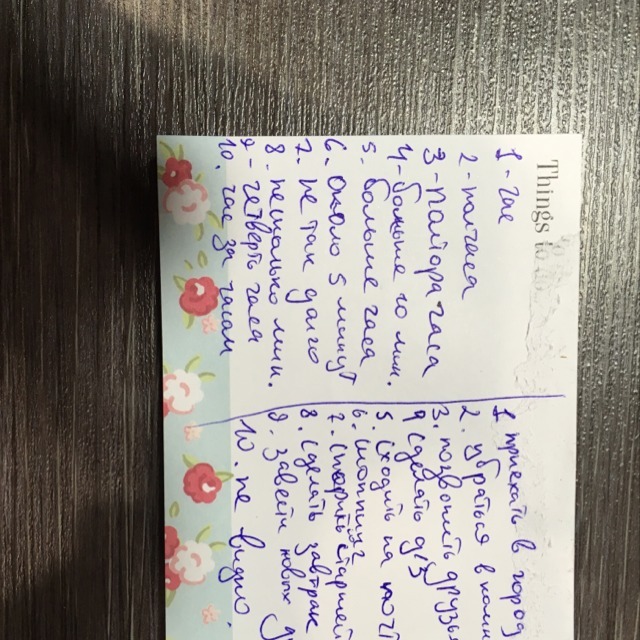 Things to
1 - час
2 - полчаса
3 - полтора часа
4 - больше 10 мин.
5. больше часа
6. около 5 минут
7. не так долго
8. несколько мин.
9 - четверть часа
10. час за часом
1. приехать в город
2. убраться в комн
3. позвонить друзья
4 сделать д/з
5 сходить на почт
6. шоппинг
7. старшей
8. сделать завтрак
9. завести новых
10. не видно.